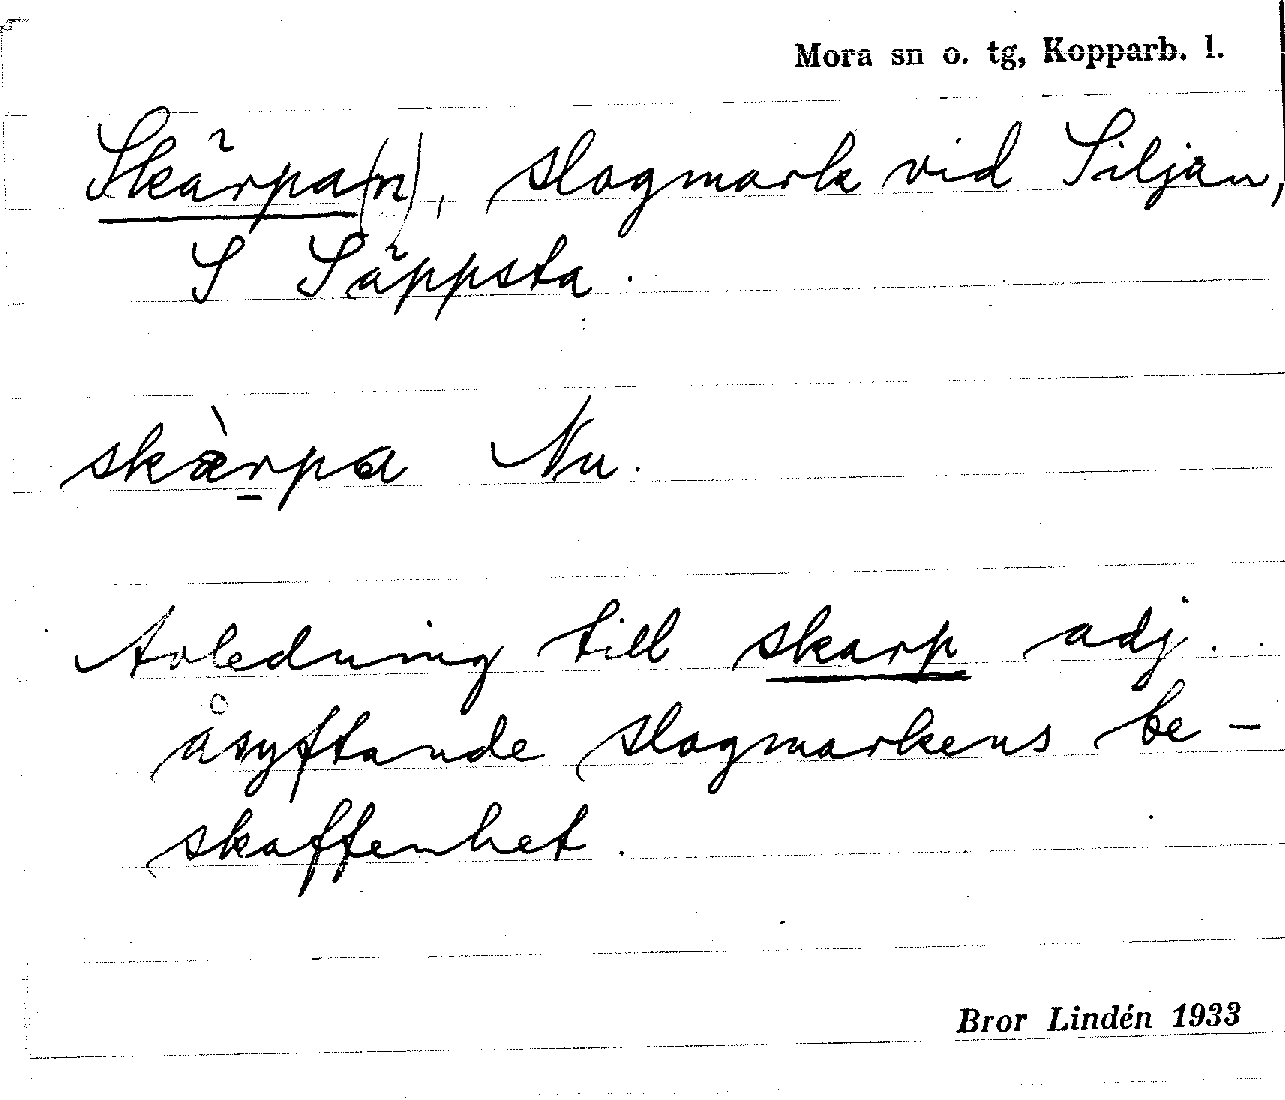 Mora sn o. tg, Kopparb. l.
Skärpa(n), slogmark vid Siljan,
S Säppsta.
skæ̀rpa Nu.
Avledning till skarp adj.
åsyftande slogmarkens be-
skaffenhet.
Bror Lindén 1933